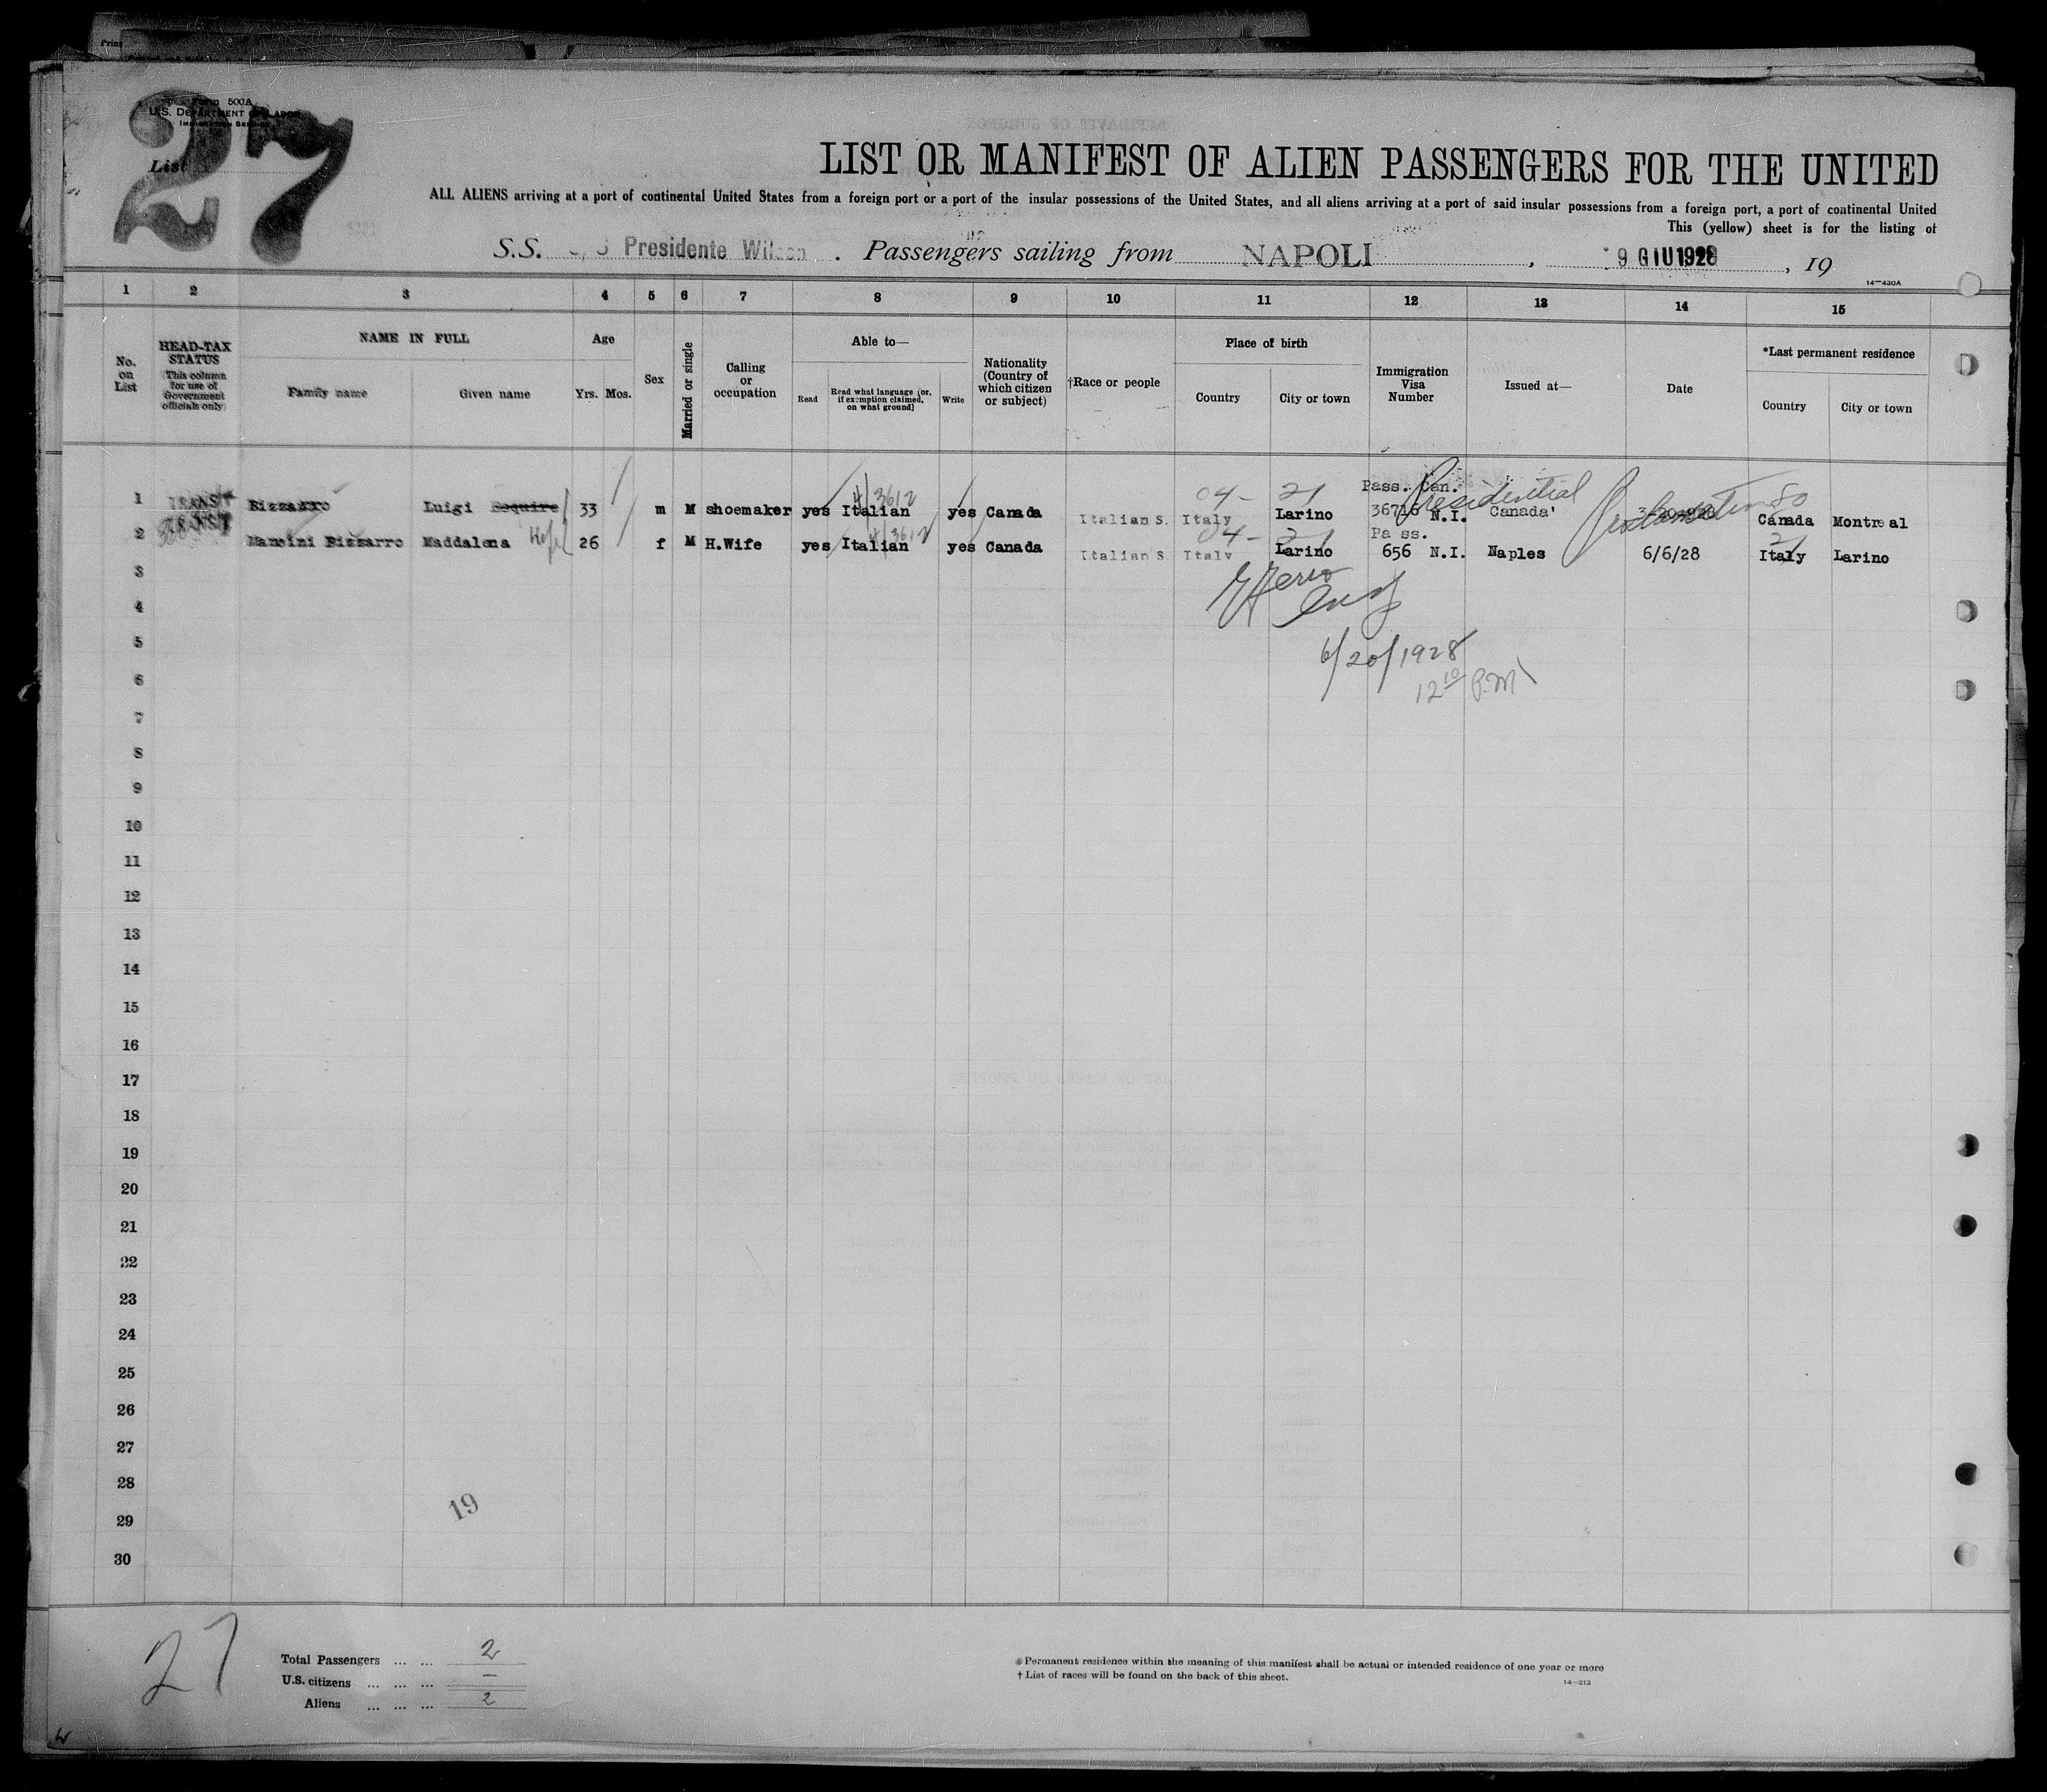 Form 500A
U.S. DEPARTMENT OF LABOR
IMMIGRATION SERVICE
List
27
LIST OR MANIFEST OF ALIEN PASSENGERS FOR THE UNITED
ALL ALIENS arriving at a port of continental United States from a foreign port or a port of the insular possessions of the United States, and all aliens arriving at a port of said insular possessions from a foreign port, a port of continental United
This (yellow) sheet is for the listing of
S.S. Presidente Wilson . Passengers sailing from NAPOLI , 9 GIU 1928 , 19
14—430A
1 2 3 4 5 6 7 8 9 10 11 12 13 14 15
No. on List
HEAD-TAX STATUS (This column for use of Government officials only)
NAME IN FULL
Family name Given name
Age
Yrs. Mos.
Sex
Married or single
Calling or occupation
Able to—
Read Read what language (or, if exemption claimed, on what ground) Write
Nationality (Country of which citizen or subject)
†Race or people
Place of birth
Country City or town
Immigration Visa Number
Issued at—
Date
*Last permanent residence
Country City or town
04- 21 Pass. Can. Presidential Proclamation 80
1 TRANSIT Bizzarro Luigi Esquire 33 m M shoemaker yes Italian yes Canada Italian S. Italy Larino 36716 N.I. Canada Canada Montreal
04- 21 Pass. 21
2 TRANSIT Mancini Bizzarro Maddalena Wife 26 f M H.Wife yes Italian yes Canada Italian S Italy Larino 656 N.I. Naples 6/6/28 Italy Larino
3
4
5
6/20/1928
6
12 10 P.M.
7
8
9
10
11
12
13
14
15
16
17
18
19
20
21
22
23
24
25
26
27
28
19
29
30
27
Total Passengers ... ... 2
U.S. citizens ... ... ... —
Aliens ... ... ... 2
* Permanent residence within the meaning of this manifest shall be actual or intended residence of one year or more
† List of races will be found on the back of this sheet.
14—213